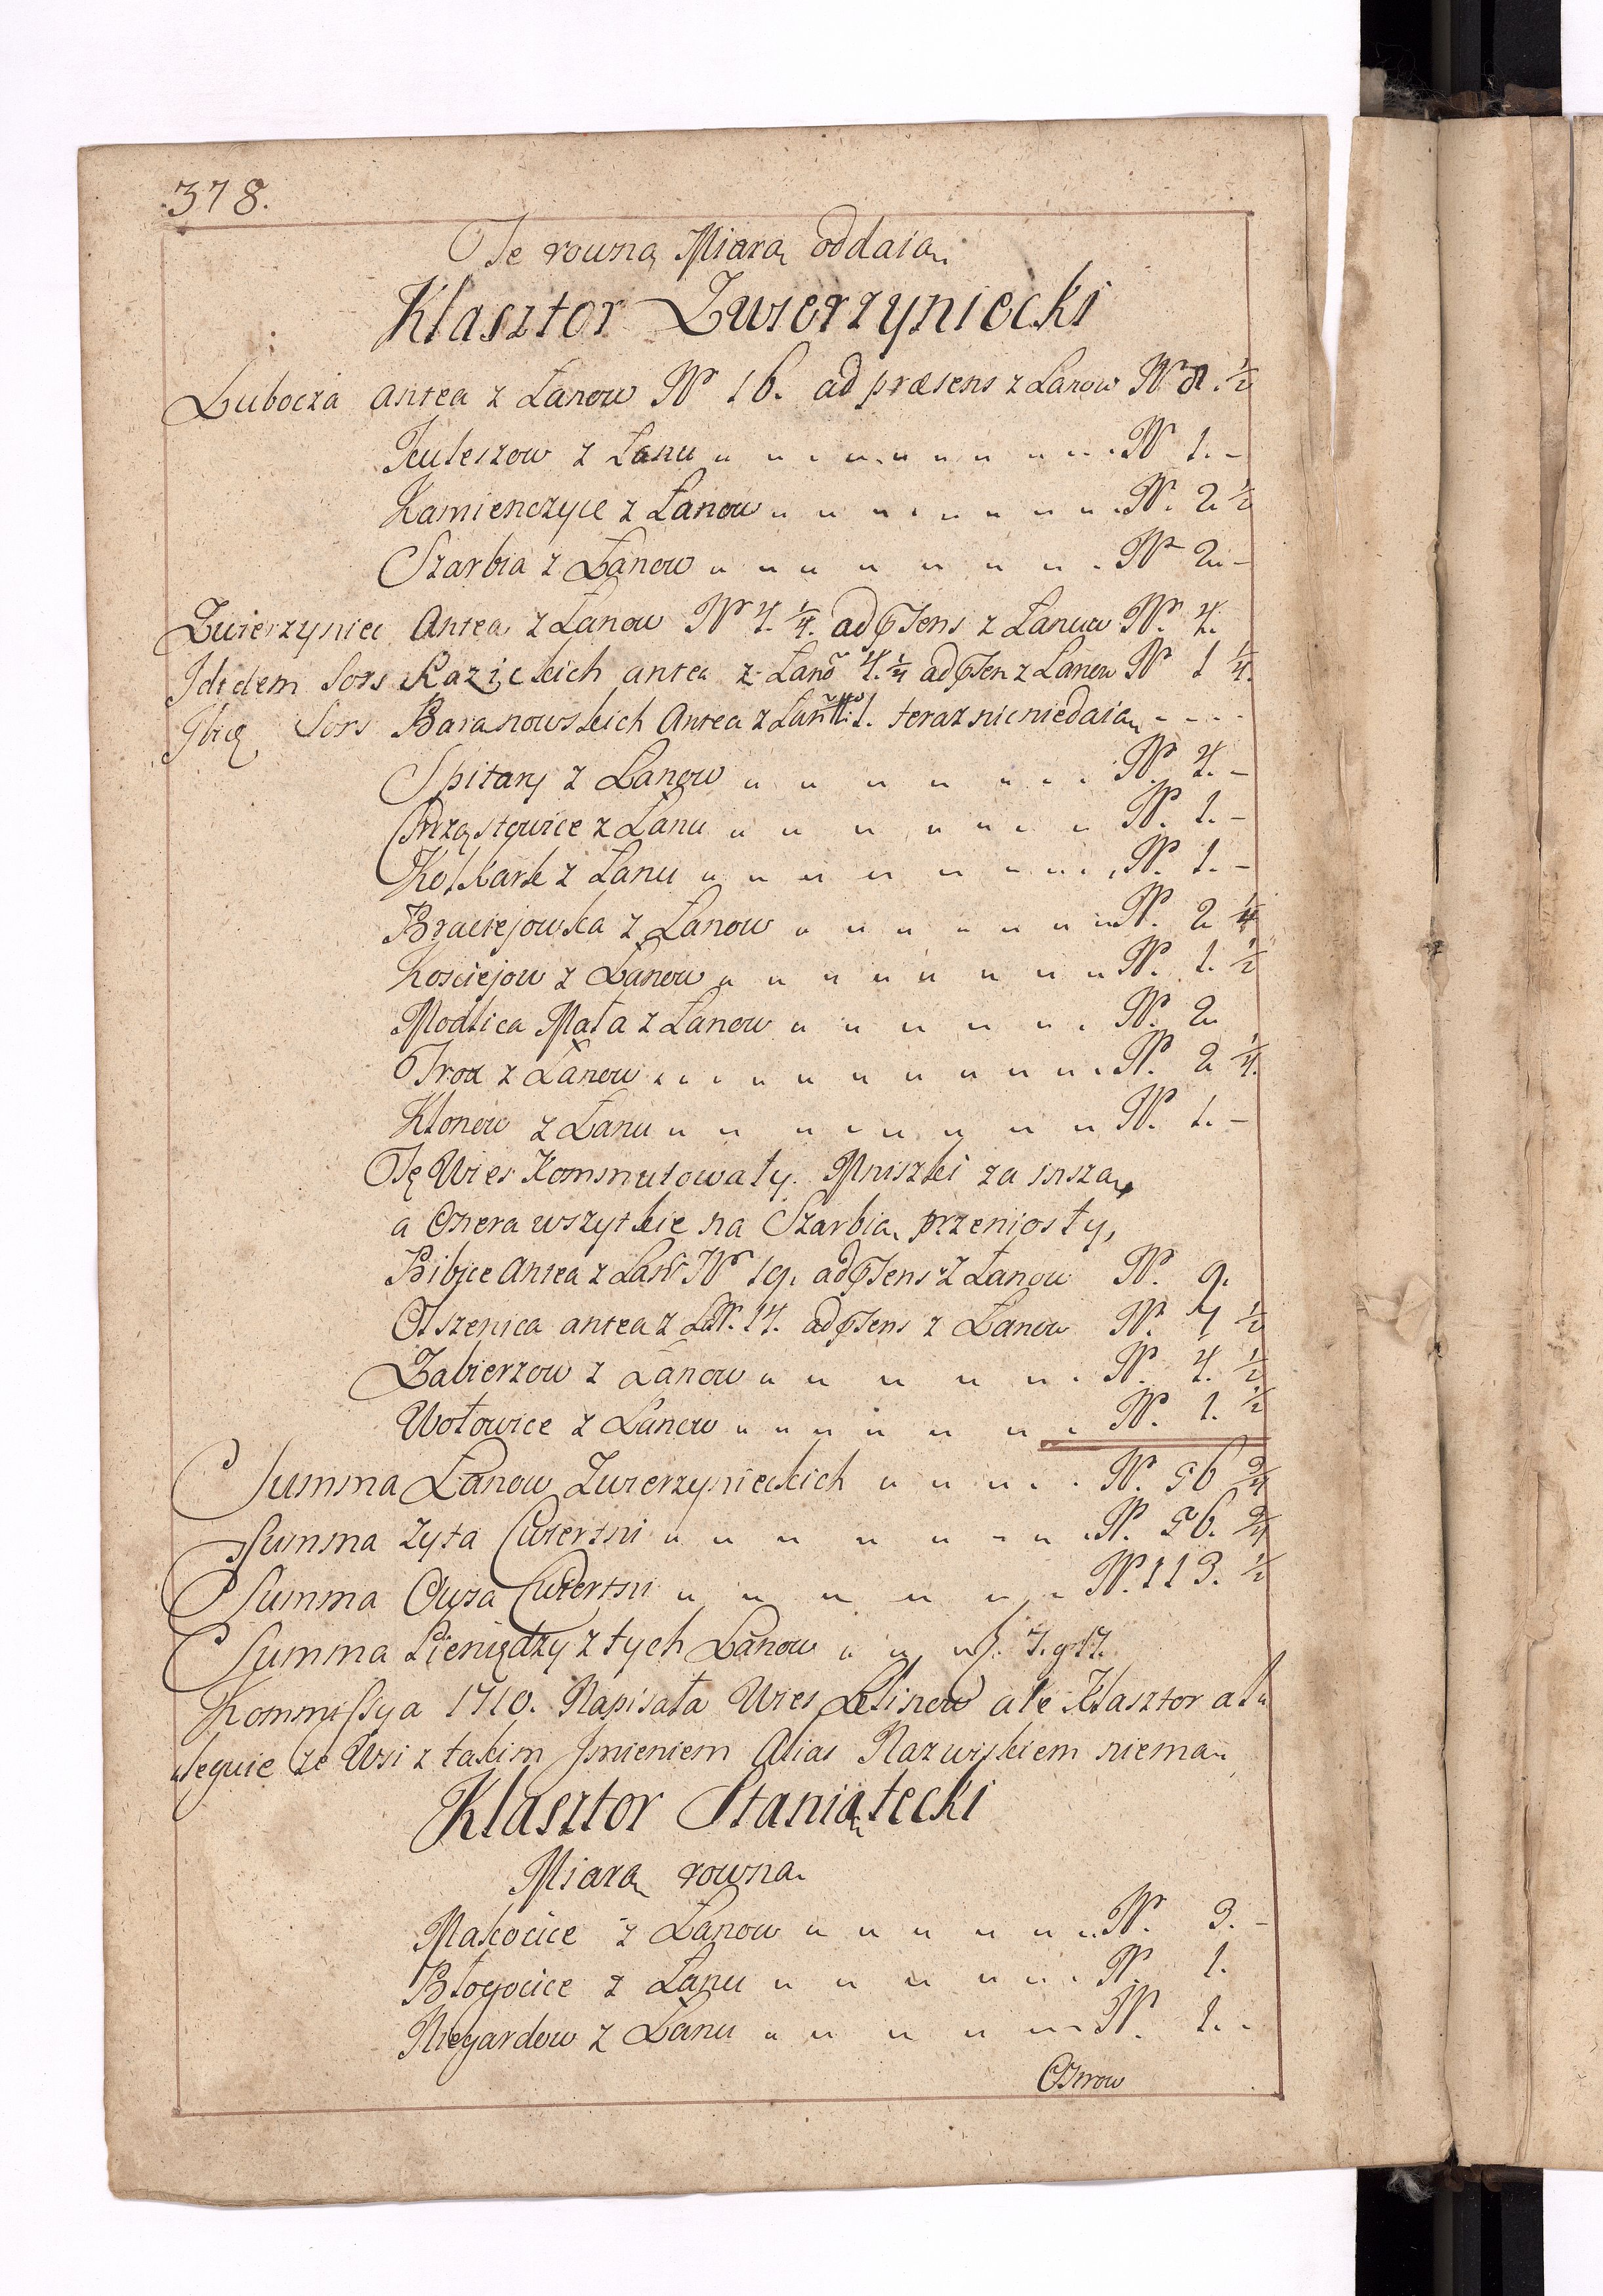 378.
Te rowną Miarą oddaią.
Klasztor Zwierzyniecki
Lubocza antea z Łanow Nº 16. ad præsens z Łanow Nº 8. ½
Kuleszow z Łanu Nº 1. -
Kamienczyce z Łanow Nº. 2 ½
Szarbia z Łanow Nº 2 -
Zwierzyniec Antea z Łanow Nº 4. ¼. ad psens z Łanow Nº. 4.
Ididem Sors Razickich antea z Łanõ 4. ¼ ad psen z Łanow Nº 1 ¼.
Sors Baranowskich Antea z Łañ Nº 1. teraz nic niedaią - - - -
Spitary z Łanow Nº. 4. -
z Łanu Nº. 1. -
z Łanu Nº. 1. -
Braciejowka z Łanow Nº. 2 ¼
Kosciejow z Łanow Nº. 1. ½
Modlica Mała z Łanow Nº. 2
z Łanow Nº. 2 ¼.
Klonow z Łanu Nº. 1. -
Tę Wies Kommutowały Mniszki za inszą,
a Onera wszytkie na Szarbią przeniosły,
Bibice Antea z Łan Nº 19. ad psens z Łanow Nº. 9.
Olszenica antea z Ł. Nº. 14. ad psens z Łanow Nº. 7 ½
Zabierzow z Łanow Nº. 4. ½
Wołowice z Łanow Nº. 1. ½
Summa Łanow Zwierzynieckich Nº. 56 ¾
Summa Zyta Cwiertni Nº. 56. ¾
Summa Owsa Cwiertni Nº. 113. ½
Summa Pieniędzy z tych Łanow f. 7. g 17.
Kommissya 1710. Napisała Wies Lelinow ale Klasztor al-
leguie ze Wsi z takim Jmieniem Alias Nazwiskiem niema.
Klasztor Staniątecki
Miarą rowną.
Makocice z Łanow Nº. 3. -
Błogocice z Łanu Nº. 1.
Niegardow z Łanu Nº. 1. -
Ostrow